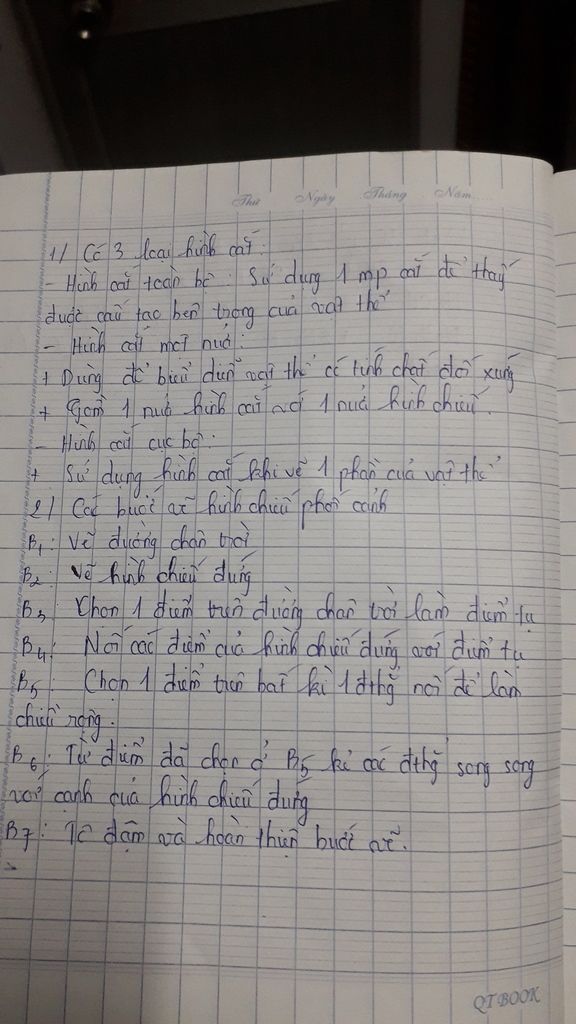 Thứ Ngày Tháng Năm
1/ Có 3 loại hình cắt:
- Hình cắt toàn bộ: Sử dụng 1 mp cắt để thấy
được cấu tạo bên trong của vật thể
- Hình cắt một nửa:
+ Dùng để biểu diễn vật thể có tính chất đối xứng
+ Gồm 1 nửa hình cắt với 1 nửa hình chiếu.
- Hình cắt cục bộ:
+ Sử dụng hình cắt khi vẽ 1 phần của vật thể
2/ Các bước vẽ hình chiếu phối cảnh
B1: Vẽ đường chân trời
B2: Vẽ hình chiếu đứng
B3: Chọn 1 điểm trên đường chân trời làm điểm tụ
B4: Nối các điểm của hình chiếu đứng với điểm tụ
B5: Chọn 1 điểm trên bất kì 1 đthg nối để làm
chiều rộng.
B6: Từ điểm đã chọn ở B5 kẻ các đthg song song
với cạnh của hình chiếu đứng
B7: Tô đậm và hoàn thiện bước vẽ.
QT BOOK